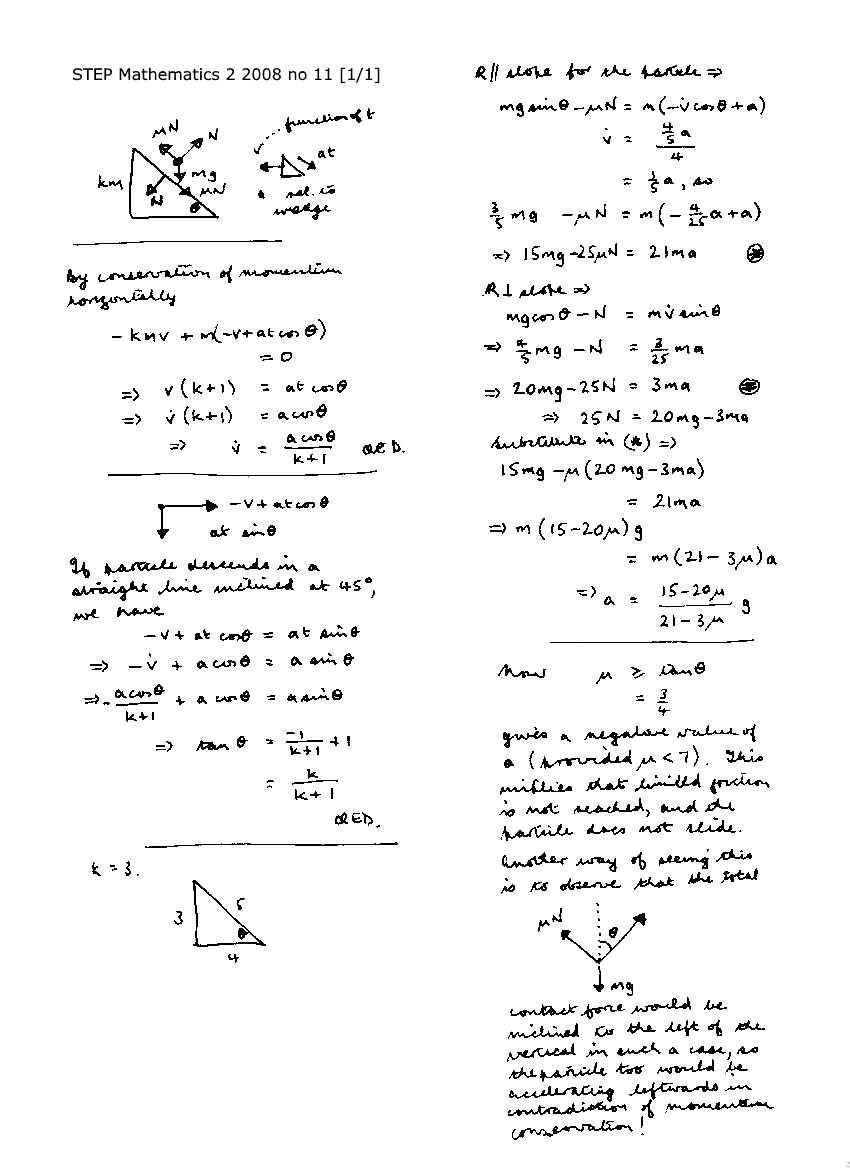 STEP Mathematics 2 2008 no 11 [1/1]
μN
N
km
mg
N
μN
θ
function of t
v
at
a rel. to
wedge
By conservation of momentum
horizontally
-kmv + m(-v+at cos θ)
= 0
=> v(k+1) = at cosθ
=> v̇(k+1) = a cosθ
=> v̇ = a cosθ / k+1 QED.
-v + at cosθ
at sinθ
If particle descends in a
straight line inclined at 45°,
we have
-v + at cosθ = at sinθ
=> -v̇ + a cosθ = a sinθ
=> - a cosθ / k+1 + a cosθ = a sinθ
=> tan θ = -1 / k+1 + 1
= k / k+1
QED.
k = 3.
3
5
θ
4
R// slope for the particle =>
mg sinθ - μN = m(-v̇ cosθ + a)
v̇ = 4/5 a / 4
= 1/5 a, so
3/5 mg - μN = m(-4/25 a + a)
=> 15mg - 25μN = 21ma (*)
R⊥ slope =>
mg cosθ - N = m v̇ sinθ
=> 4/5 mg - N = 3/25 ma
=> 20mg - 25N = 3ma (*)
=> 25N = 20mg - 3ma
substitute in (*) =>
15mg - μ(20mg - 3ma)
= 21ma
=> m(15-20μ)g
= m(21-3μ)a
=> a = 15-20μ / 21-3μ g
Now μ ≥ tanθ
= 3/4
gives a negative value of
a (provided μ < 7). This
implies that limited friction
is not reached, and the
particle does not slide.
Another way of seeing this
is to observe that the total
μN
θ
mg
contact force would be
inclined to the left of the
vertical in such a case, so
the particle too would be
accelerating leftwards in
contradiction of momentum
conservation!